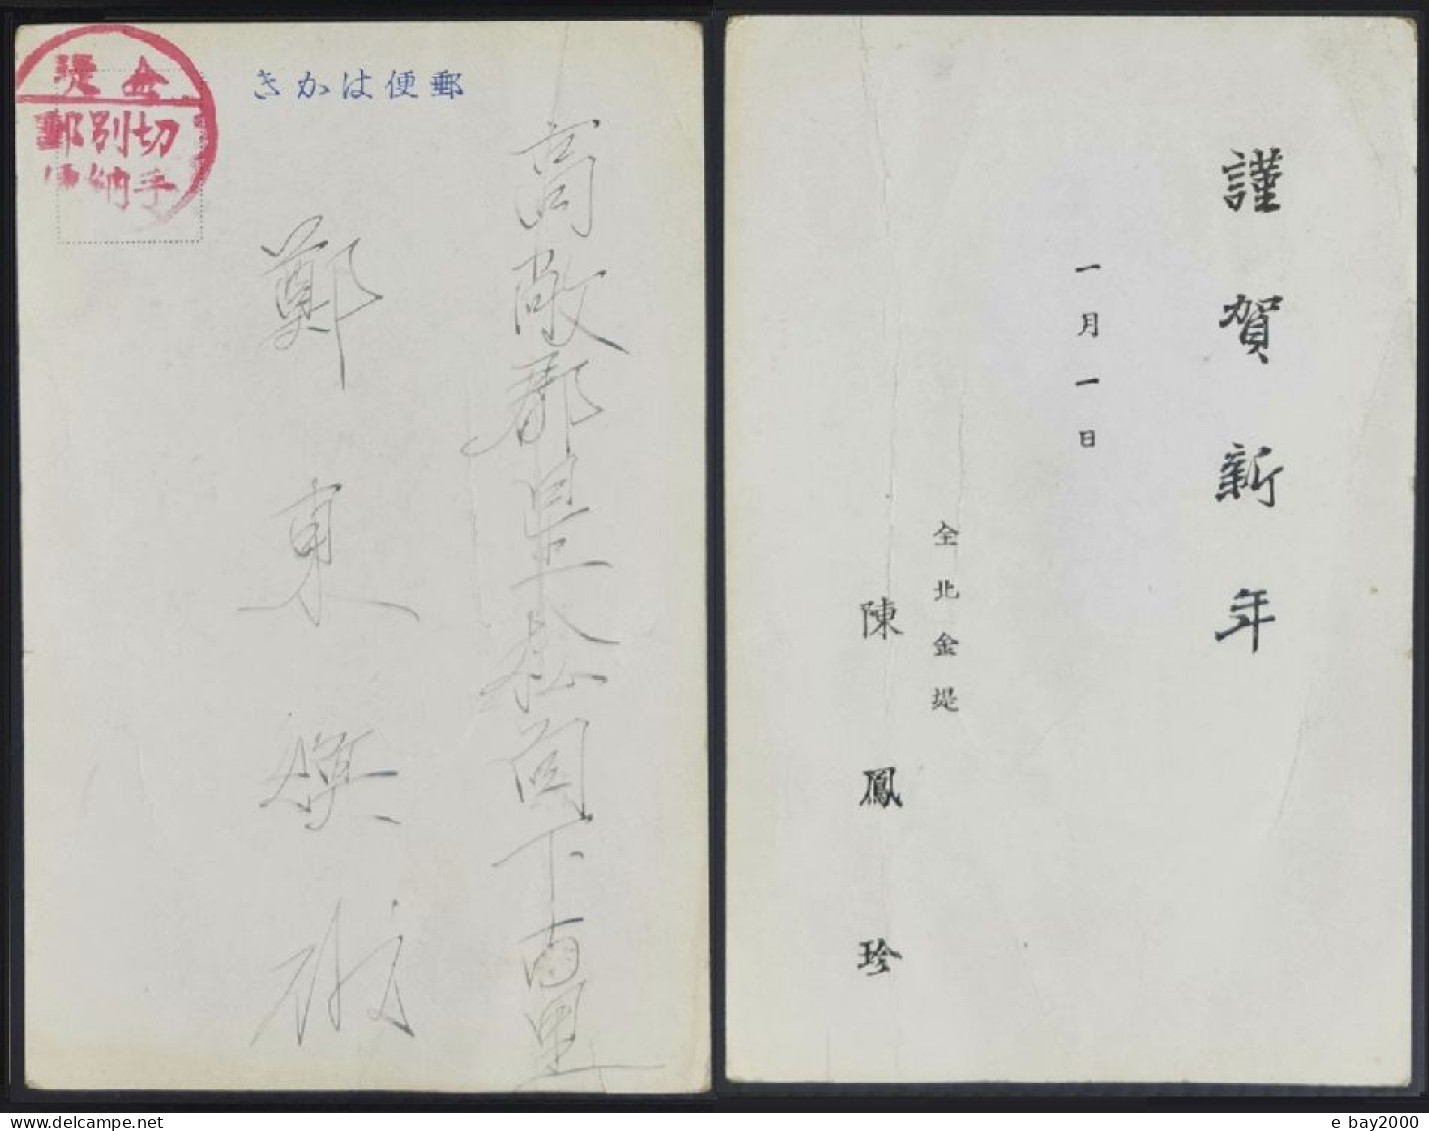 金堤
切手
別納
郵便
郵便はかき
高敞郡星松面下南里
鄭東
謹賀新年
一月一日
全北金堤
陳鳳珍
e bay2000